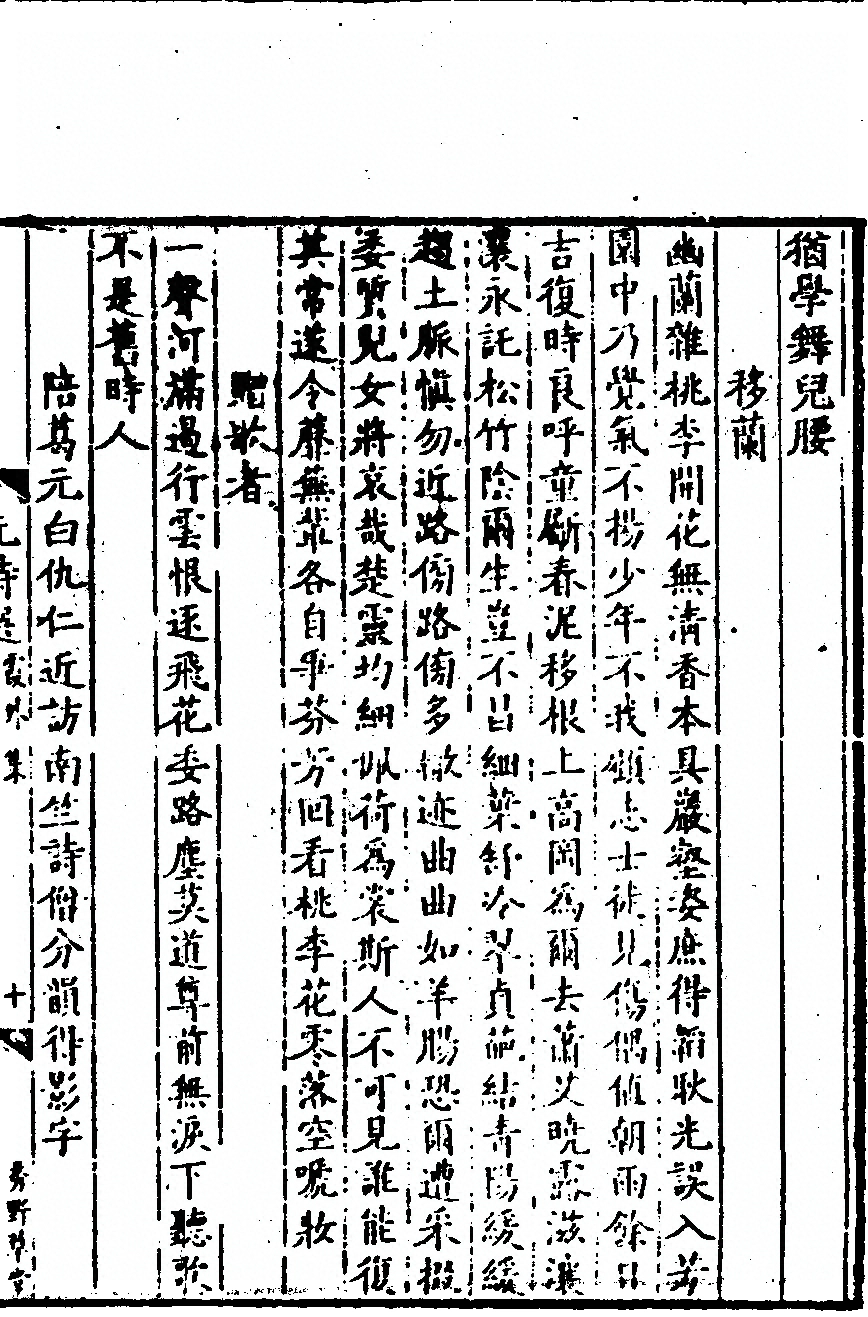 猶學舞兒腰
移蘭
幽蘭雜桃李開花無清香本具巖壑姿庶得韜耿光誤入芳
園中乃覺氣不揚少年不我顧志士徒見傷偶值朝雨餘日
吉復時良呼童斸春泥移根上高岡為爾去蕭艾曉露滋瀼
瀼永託松竹陰爾生豈不昌細葉舒冷翠貞葩結青陽緩緩
趨土脈慎勿近路傍路傍多轍迹曲曲如羊腸恐爾遭采掇
委質兒女將哀哉楚靈均紉佩荷為裳斯人不可見誰能復
其常遂令蘼蕪叢各自爭芬芳回看桃李花零落空嗁妝
贈歌者
一聲河滿遏行雲恨逐飛花委路塵莫道尊前無淚下聽歌
不是舊時人
陪葛元白仇仁近訪南竺詩僧分韻得影字
元詩選 霞外集
十
秀野草堂